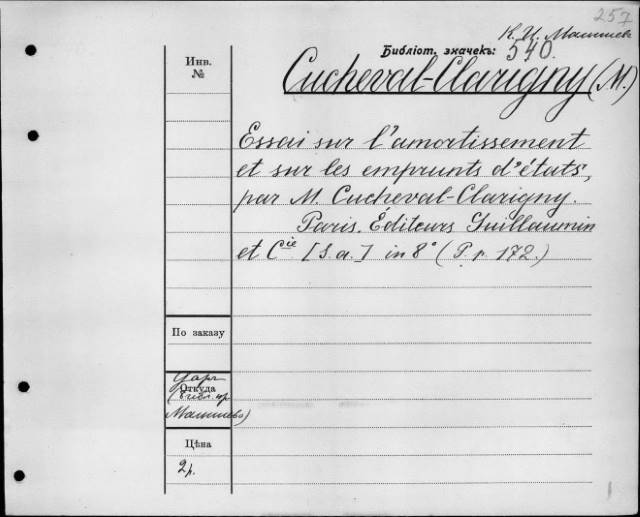 257
К. И.
Библіот. значекъ: 540.
Инв.
№
Cucheval-Clarigny (M.)
Essai sur l'amortissement
et sur les emprunts d'états,
par M. Cucheval-Clarigny.
Paris. Éditeurs Guillaumin
et Cie [S. a.] in 8° (P. p. 172.)
По заказу
Откуда
Цѣна
2 р.